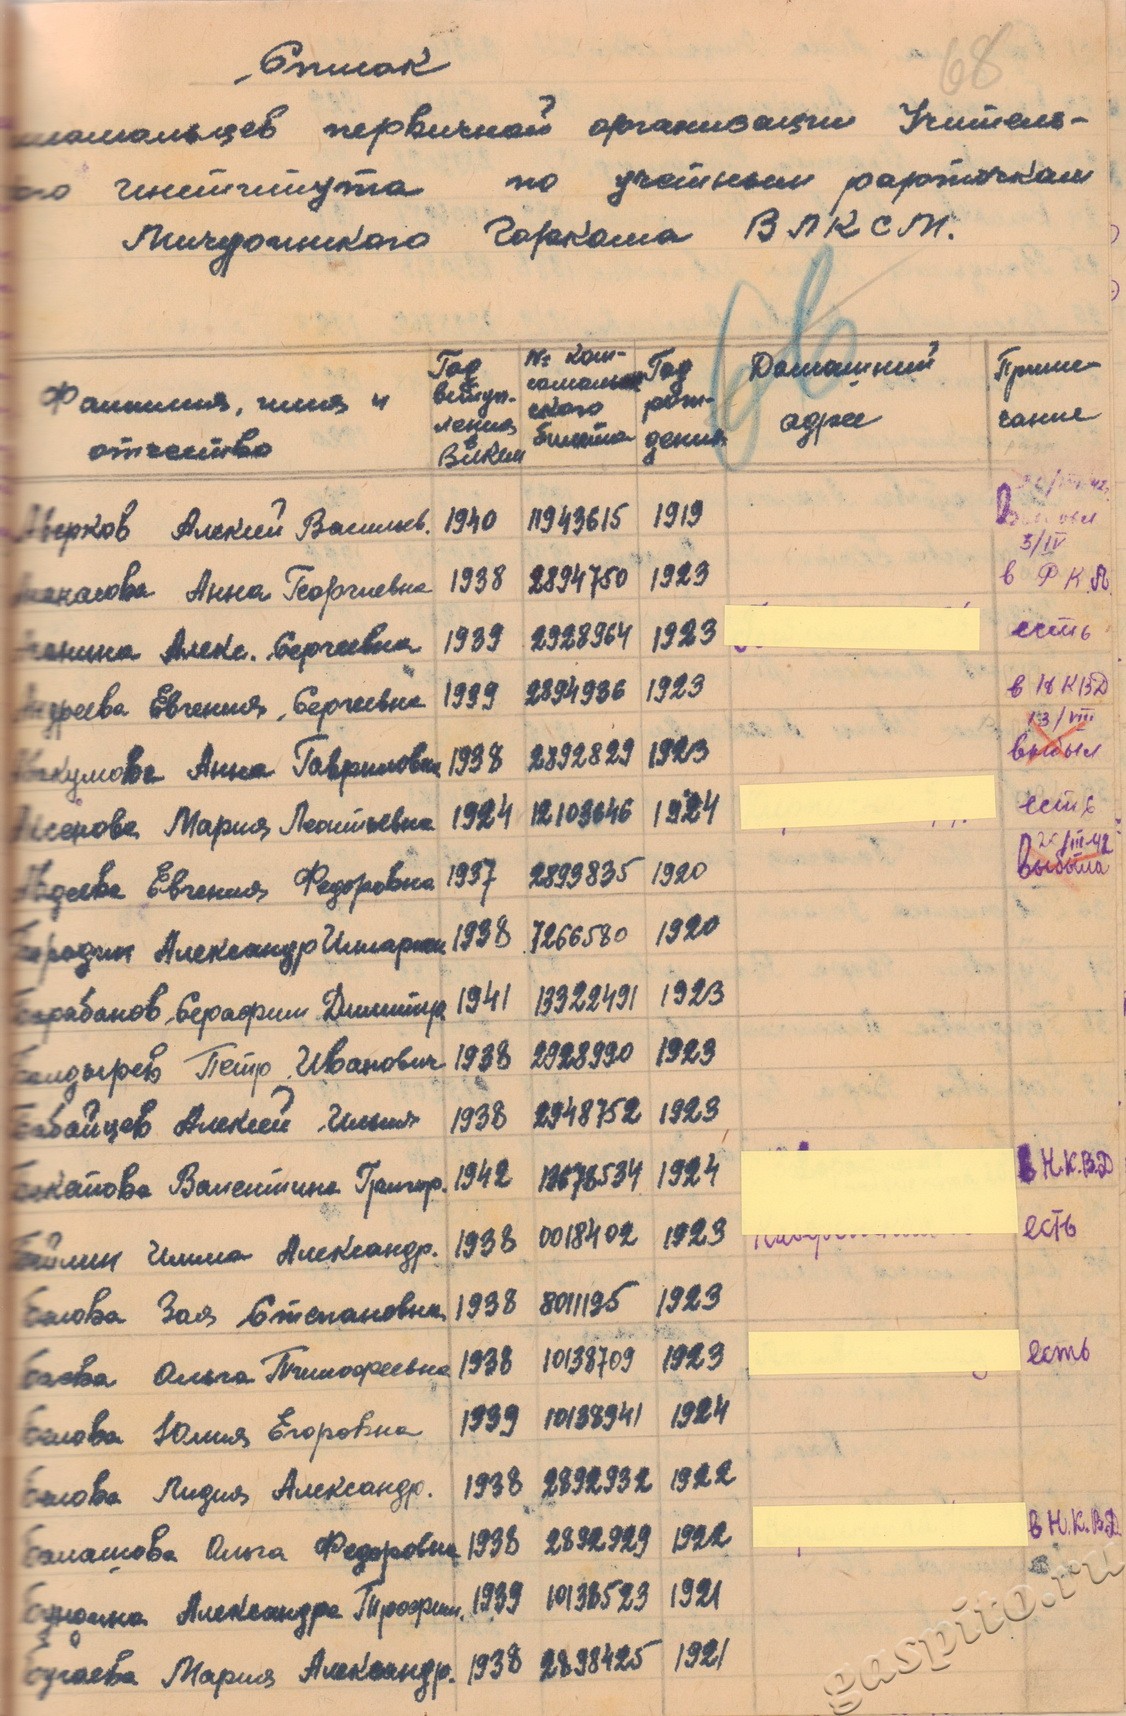 68
Список
комсомольцев первичной организации Учитель-
ского института по учетным карточкам
Мичуринского Горкома ВЛКСМ.
66
Фамилия, имя и отчество
Год вступ-ления в ВЛКСМ
№ ком-сомоль-ского билета
Год рож-дения
Домашний адрес
Приме-чание
Аверков Алексей Васильев. 1940 11943615 1919 Выбыл
Анна Георгиевна 1938 2894750 1923 3/IV в РКП
Алекс. Сергеевна 1939 2928964 1923 есть
Андреева Евгения Сергеевна 1939 2894936 1923 в НКВД
Абакумова Анна Гавриловна 1938 2892829 1923 13/VIII выбыл
Аксенова Мария Леонтьевна 1924 12109646 1924 есть
Авдеева Евгения Федоровна 1937 2893835 1920 25/III-42 Выбыла
Бородин Александр 1938 7266580 1920
Барабанов Серафим Димитр 1941 13922491 1923
Болдырев Петр Иванович 1938 2928990 1923
Бабайцев Алексей Ильич 1938 2948752 1923
Валентина Григор. 1942 13678534 1924 в Н.К.В.Д
Александр. 1938 0018402 1923 есть
Зоя Степановна 1938 8011195 1923
Ольга Тимофеевна 1938 10138709 1923 есть
Белова Юлия Егоровна 1939 10138941 1924
Белова Лидия Александр. 1938 2892932 1922
Балашова Ольга Федоровна 1938 2892929 1922 в Н.К.В.Д
Александра Трофим. 1939 10138523 1921
Бугаева Мария Александр. 1938 2898425 1921
gaspito.ru